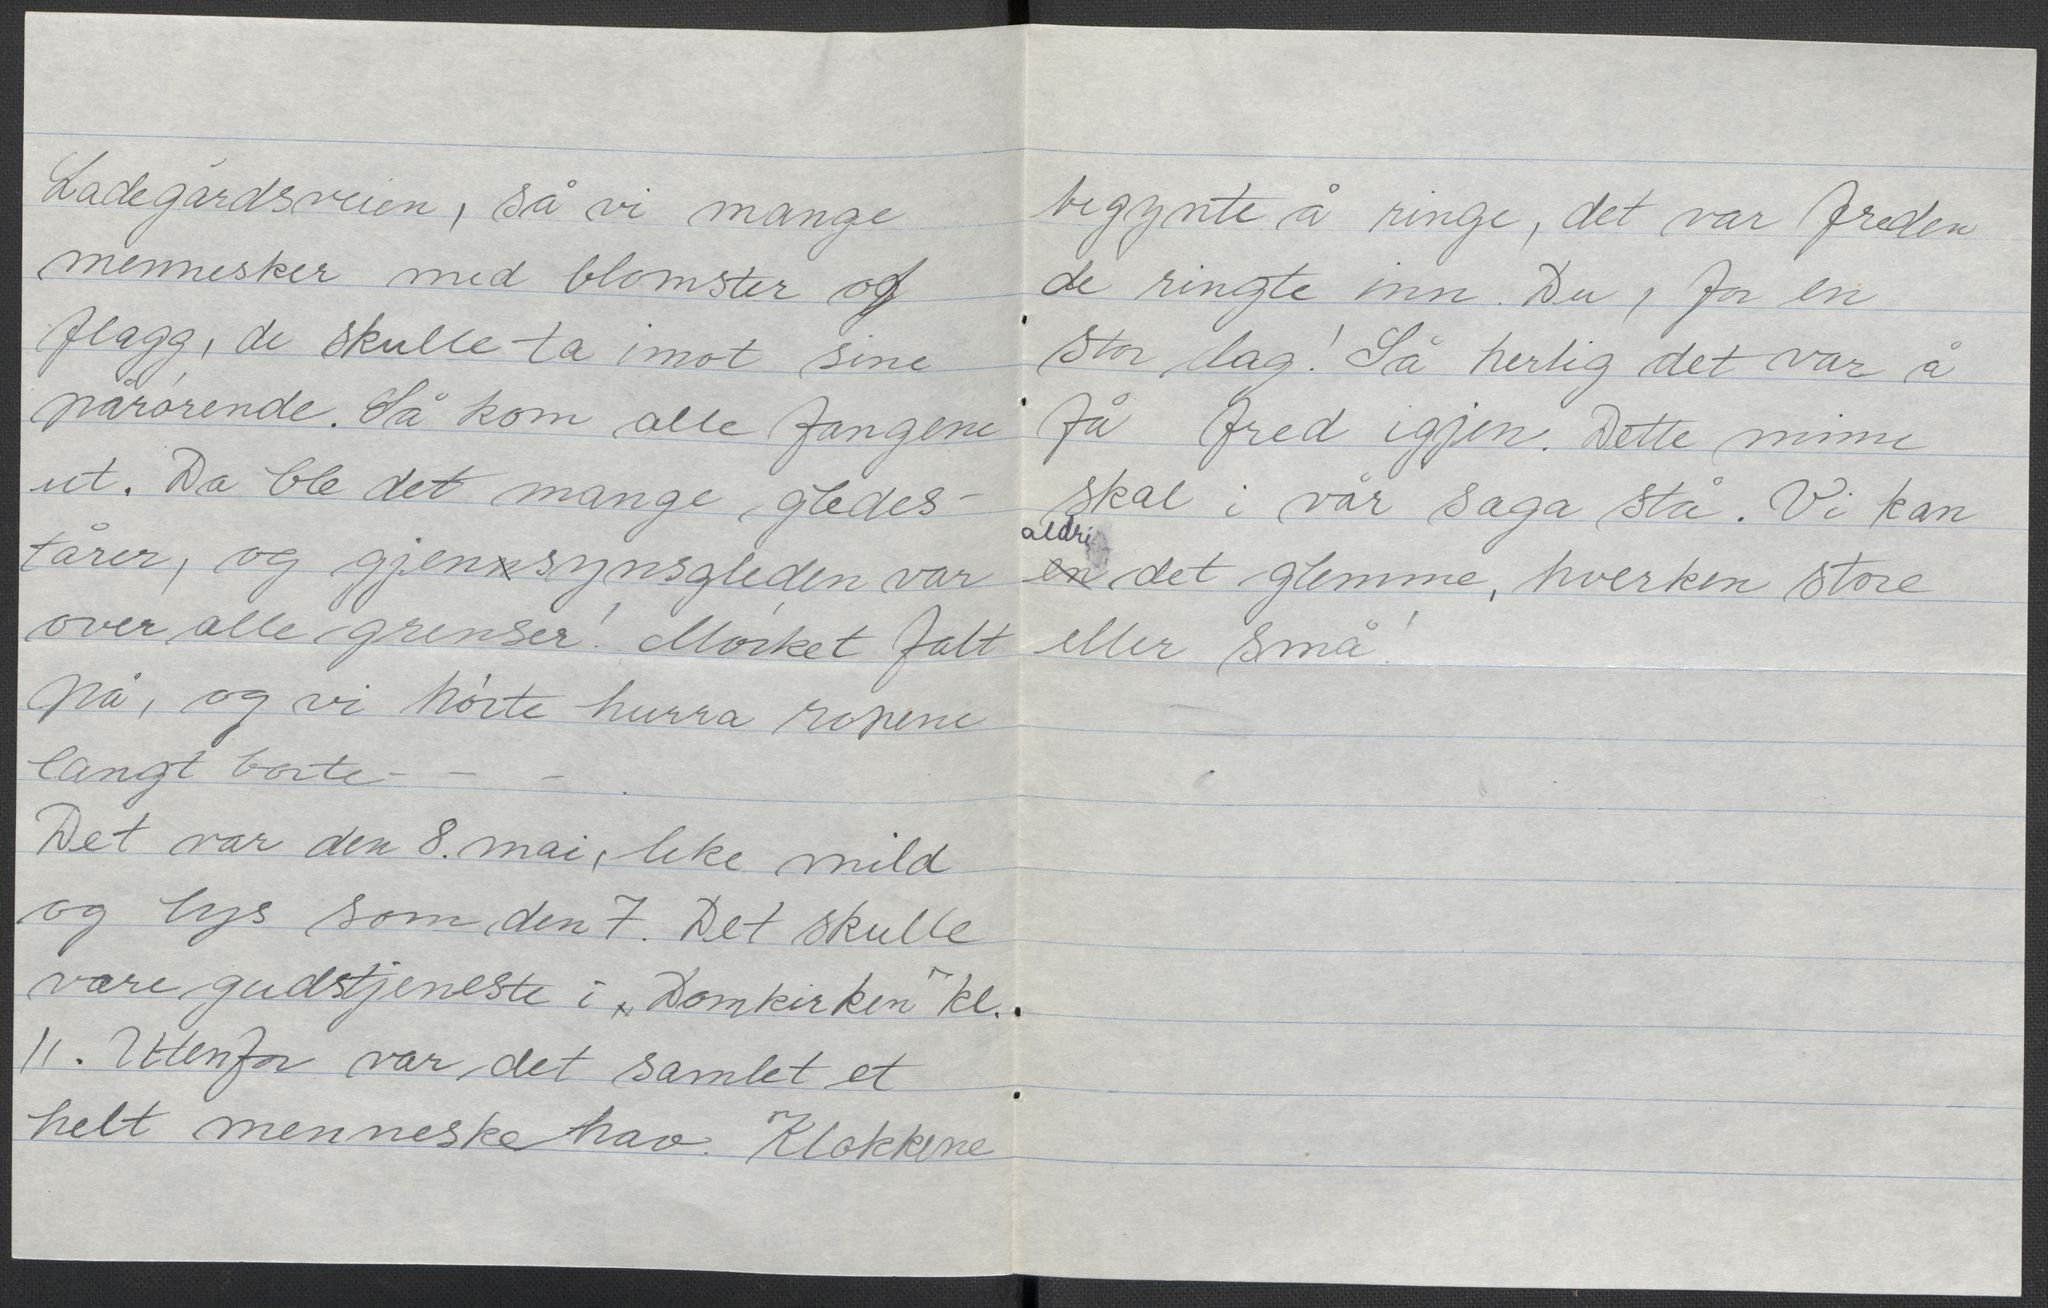 Ladegårdsveien, så vi mange
mennesker med blomster og
flagg, de skulle ta imot sine
pårørende. Så kom alle fangene
ut. Da ble det mange gledes-
tårer, og gjennsynsgleden var
over alle grenser! Mørket falt
på, og vi hørte hurra ropene
langt borte - - -
Det var den 8. mai, like mild
og lys som den 7. Det skulle
være gudstjeneste i „Domkirken" kl.
11. Utenfor var det samlet et
helt menneske hav. Klokkene
begynte å ringe, det var freden
de ringte inn. Du, for en
stor dag! Så herlig det var å
få fred igjen. Dette minne
skal i vår saga stå. Vi kan
aldri
en det glemme, hverken store
eller små!